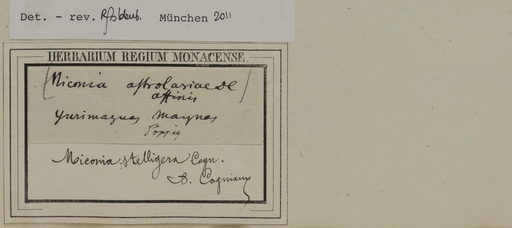 Det. - rev. München 2011
HERBARIUM REGIUM MONACENSE.
(Miconia DC
affinis)
Yurimaguas Maynas
Miconia stelligera Cogn.
A. Cogniaux